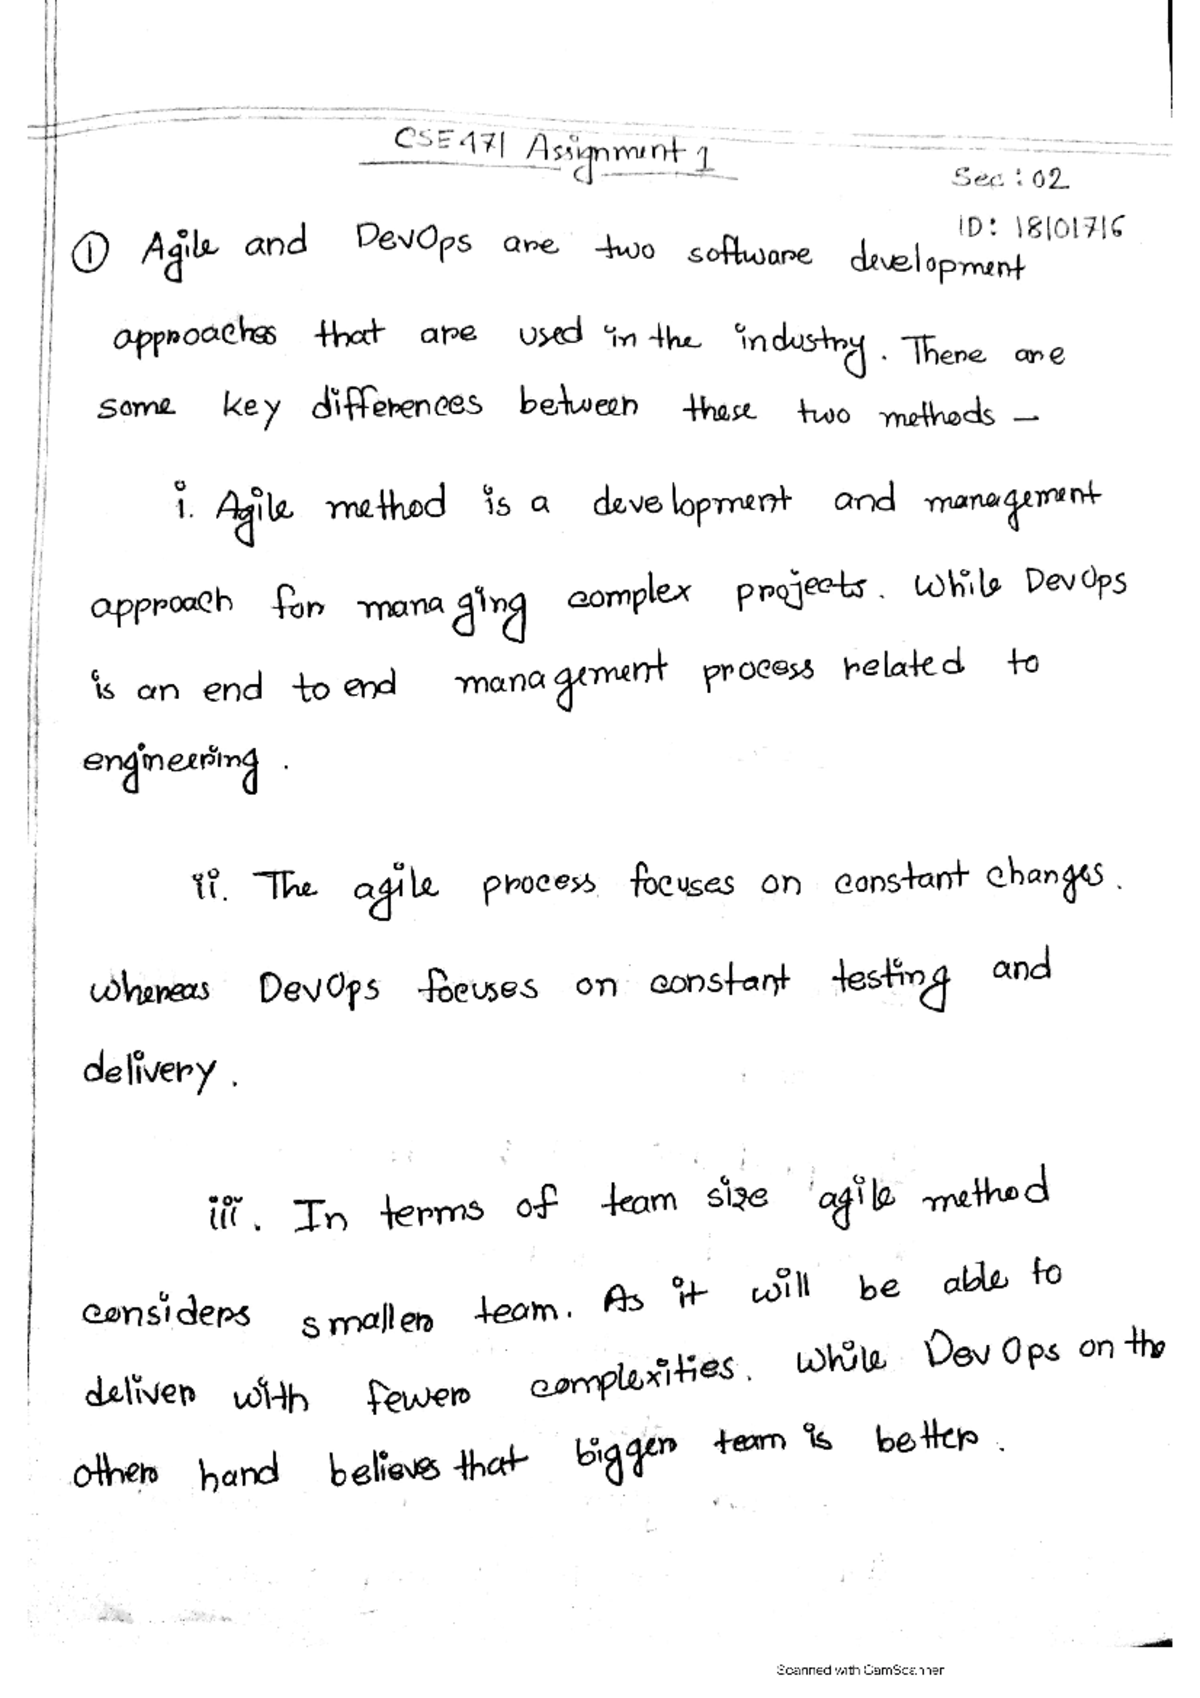 CSE471 Assignment 1
Sec: 02
ID: 18101716
① Agile and DevOps are two software development
approaches that are used in the industry. There are
some key differences between these two methods —
i. Agile method is a development and management
approach for managing complex projects. While DevOps
is an end to end management process related to
engineering.
ii. The agile process focuses on constant changes.
whereas DevOps focuses on constant testing and
delivery.
iii. In terms of team size agile method
considers smaller team. As it will be able to
deliver with fewer complexities. While DevOps on the
other hand believes that bigger team is better.
Scanned with CamScanner